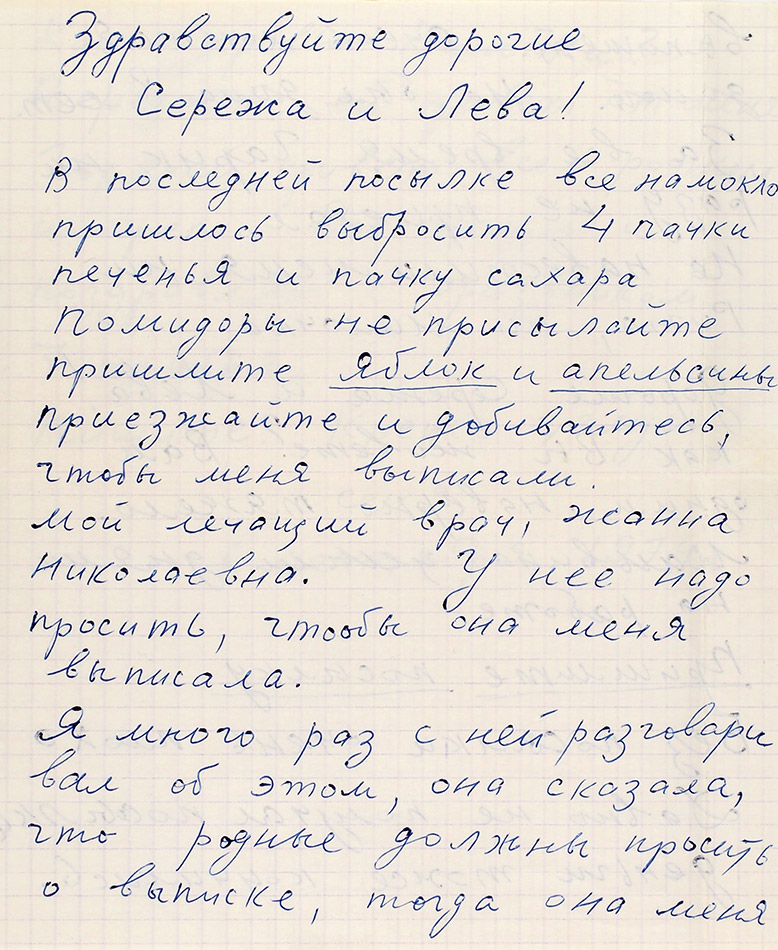 Здравствуйте дорогие
Сережа и Лева!
В последней посылке все намокло
пришлось выбросить 4 пачки
печенья и пачку сахара
Помидоры не присылайте
пришлите яблок и апельсины
приезжайте и добивайтесь,
чтобы меня выписали.
Мой лечащий врач, Жанна
Николаевна. У нее надо
просить, чтообы она меня
выписала.
Я много раз с ней разговари
вал об этом, она сказала,
что родные должны просить
о выписке, тогда она меня